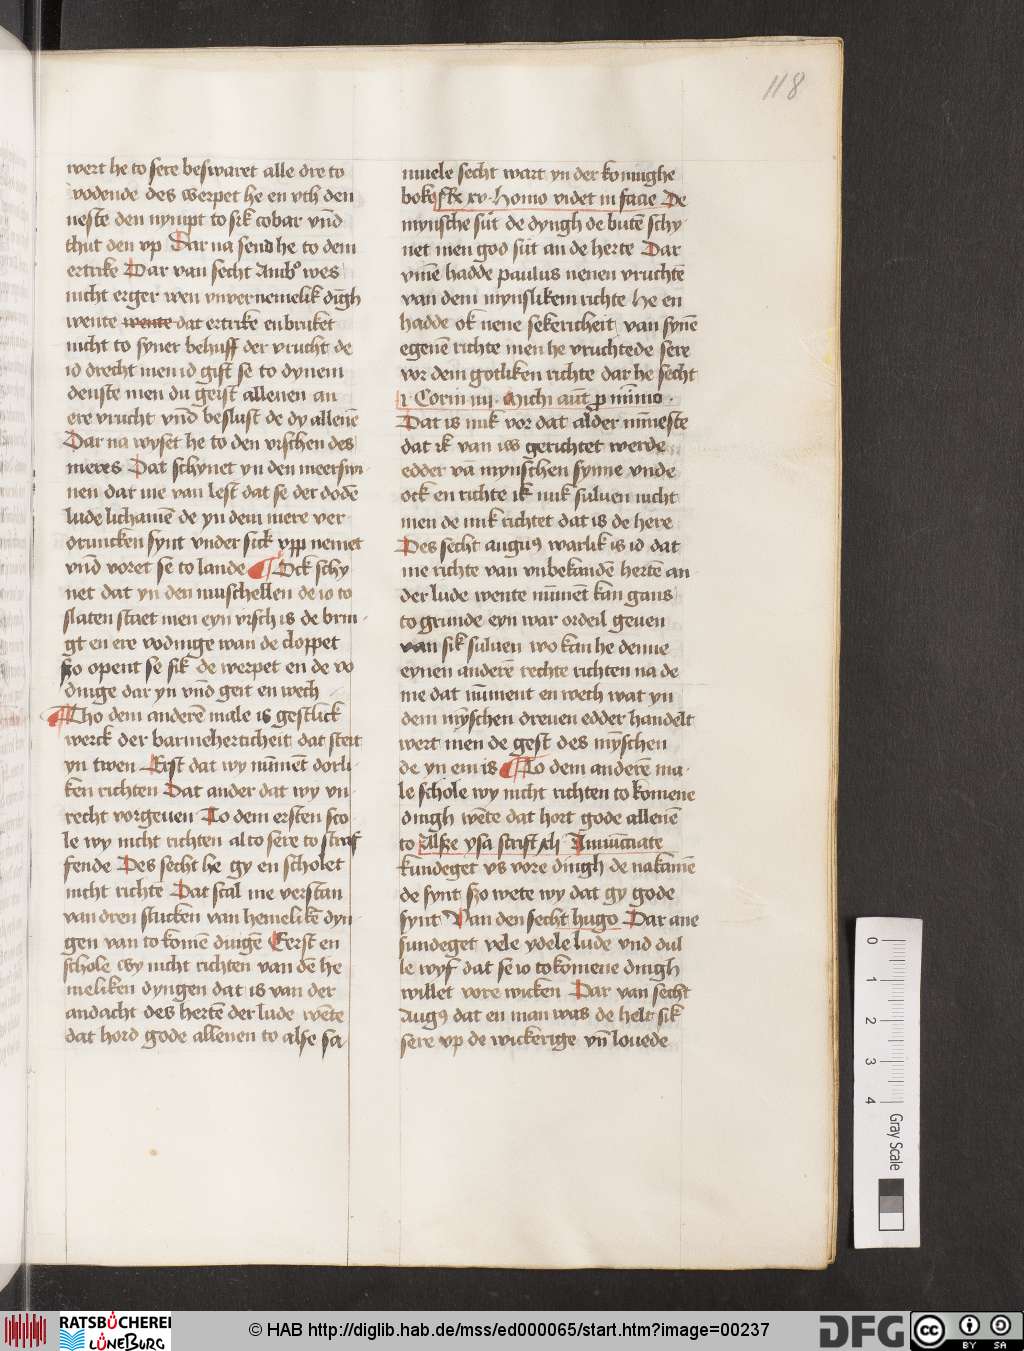 118
wert he to sere beswaret alle dre to
vodende des werpet he en vth den
neste den nympt to sik cobar vnd
thut den vp Dar na send he to dem
ertrike Dar van secht Ambꝰ wes
nicht erger wen vnvernemelik dīgh
wente wente dat ertrike enbruket
nicht to syner behuff der vrucht de
id drecht men id gift se to dynem
denste men du gerst allenen an
ere vrucht vnd beslust de dy allenē
Dar na wyset he to den vischen des
meres Dat schynet yn den meerswi
nen dar me van lest dat se der dodē
lude lichamē de yn dem mere ver
druncken synt vnder sick vpp nemet
vnd voret se to lande ¶ Ock schy
net dat yn den muschellen de io to
slaten staet men eyn visch is de brin
gt en ere vodinge wan de cloppet
szo opent se sik de werpet en de vo
dinge dar yn vnd geit en wech
¶ Tho dem anderē male is gestlick
werck der barmeherticheit dat steit
yn twen Erst dat wy nūmēt dorli
ken richten Dat ander dat wy vn
recht vorgeuen To dem ersten sco
le wy nicht richten al to sere to straf
fende Des secht he gy en scholet
nicht richtē Dat scal me verstan
van dren stucken van hemelikē dyn
gen van to komē dingē Eerst en
schole wy nicht richten van dē he
meliken dyngen dat is van der
andacht des hertē der lude wēte
dat hord gode allenen to alse sa
muele secht wart yn der koninghe
boke Re xv. Homo videt in facie De
mynsche sut de dyngh de butē schy
net men god sut an de herte Dar
vme hadde paulus nenen vruchtē
van dem mynsliken richte He en
hadde ok nene sekericheit van synē
egenē richte men he vruchtede sere
vor dem gotliken richte dar he secht
i Corin iiij. Michi aūt p mīmo.
Dat is mik vor dat alder mīneste
dat ik van iw gerichtet werde
edder vā mynschen synne vnde
ock en richte ik mik suluen nicht
men de mik richtet dat is de here
Des secht augusꝰ warlik is id dat
me richte van vnbekandē hertē an
der lude wente nūmēt kan gans
to grunde eyn war ordeil geuen
van sik suluen wo kan he denne
eynen anderē rechte richten na de
me dat nūment en wech wat yn
dem mȳschen dreuen edder handelt
wert men de gest des mȳschen
de yn em is ¶ To dem anderē ma
le schole wy nicht richten to komene
dingh wēte dat hort gode allenē
to Alse ysa scrift xli Annūciate
kundeget vs vore dingh de nakamē
de synt szo wete wy dat gy gode
synt Van den secht hugo Dar ane
sundeget vele ydele lude vnd dul
le wyf dat se io tokomene dingh
willet vore wicken Dar van secht
Augꝰ dat en man was de helt sik
sere vp de wickerige vn̄ louede
0 1 2 3 4 Gray Scale
RATSBÜCHEREI LÜNEBURG
© HAB http://diglib.hab.de/mss/ed000065/start.htm?image=00237
DFG
cc BY SA